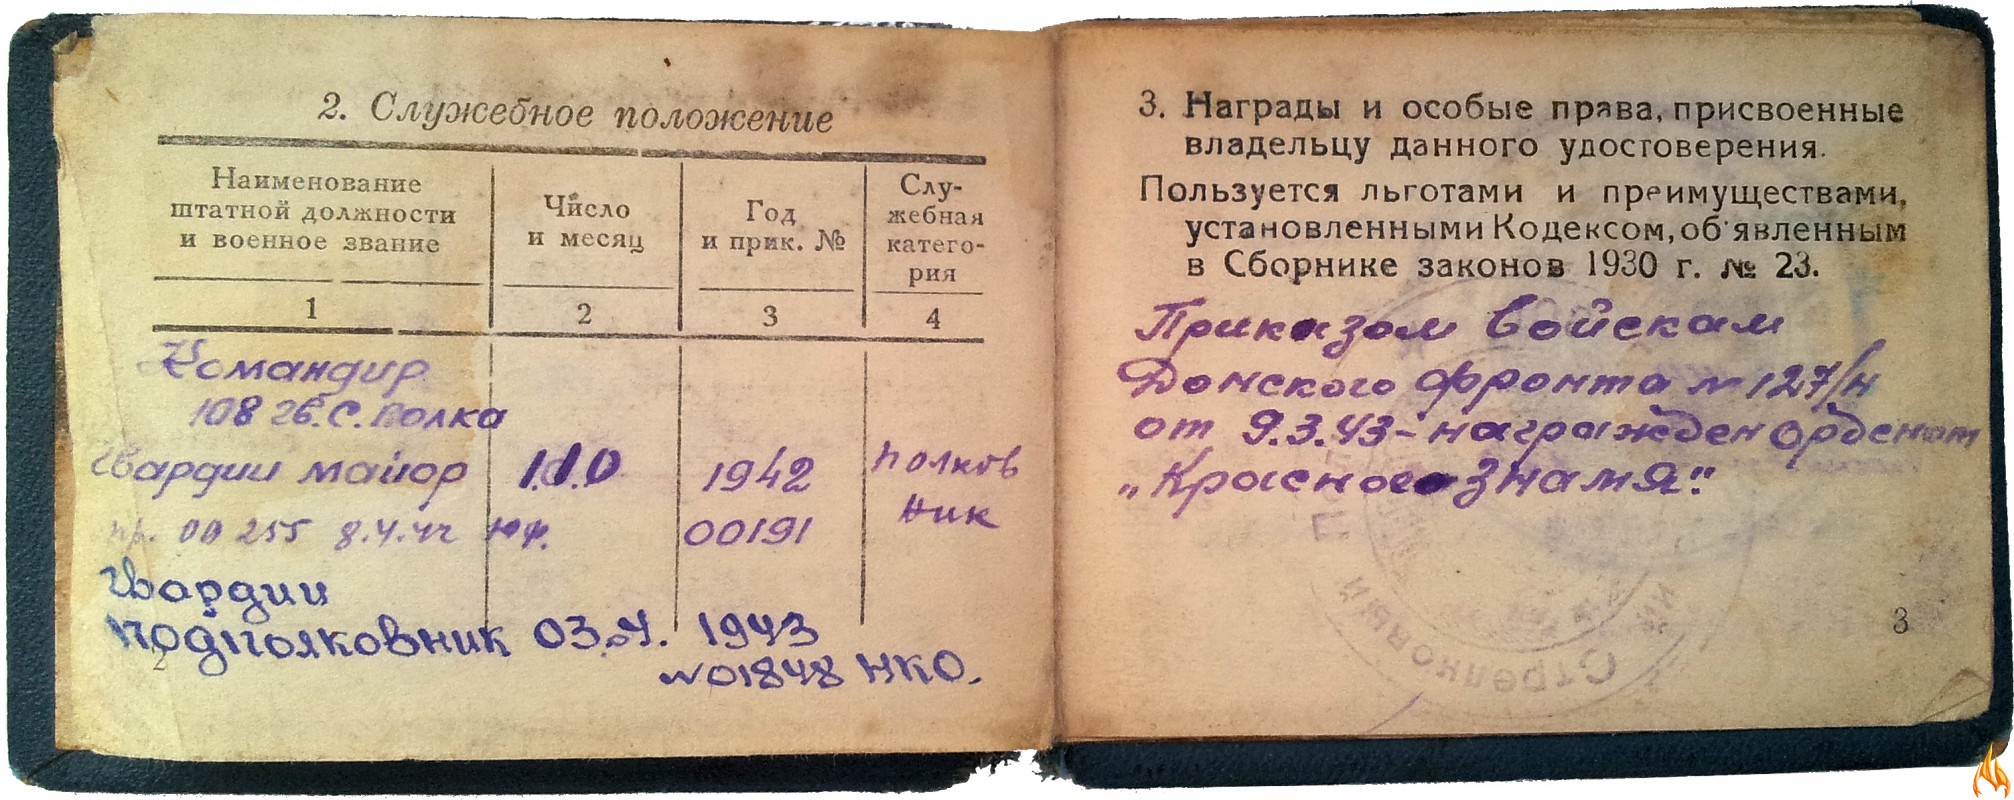 2. Служебное положение
Наименование
штатной должности
и военное звание
Число
и месяц
Год
и прик. №
Слу-
жебная
катего-
рия
1
2
3
4
Командир
108 гв. С. полка
Гвардии майор
1942
Полков
ник
00255 8.4.42
00191
Гвардии
Подполковник 03.04. 1943
№01848 НКО.
2
3. Награды и особые права, присвоенные
владельцу данного удостоверения.
Пользуется льготами и преимуществами,
установленными Кодексом, об'явленным
в Сборнике законов 1930 г. № 23.
Приказом войскам
Донского фронта № 127/н
от 9.3.43 - награжден орденом
„Красного знамя".
Стрелковый
3